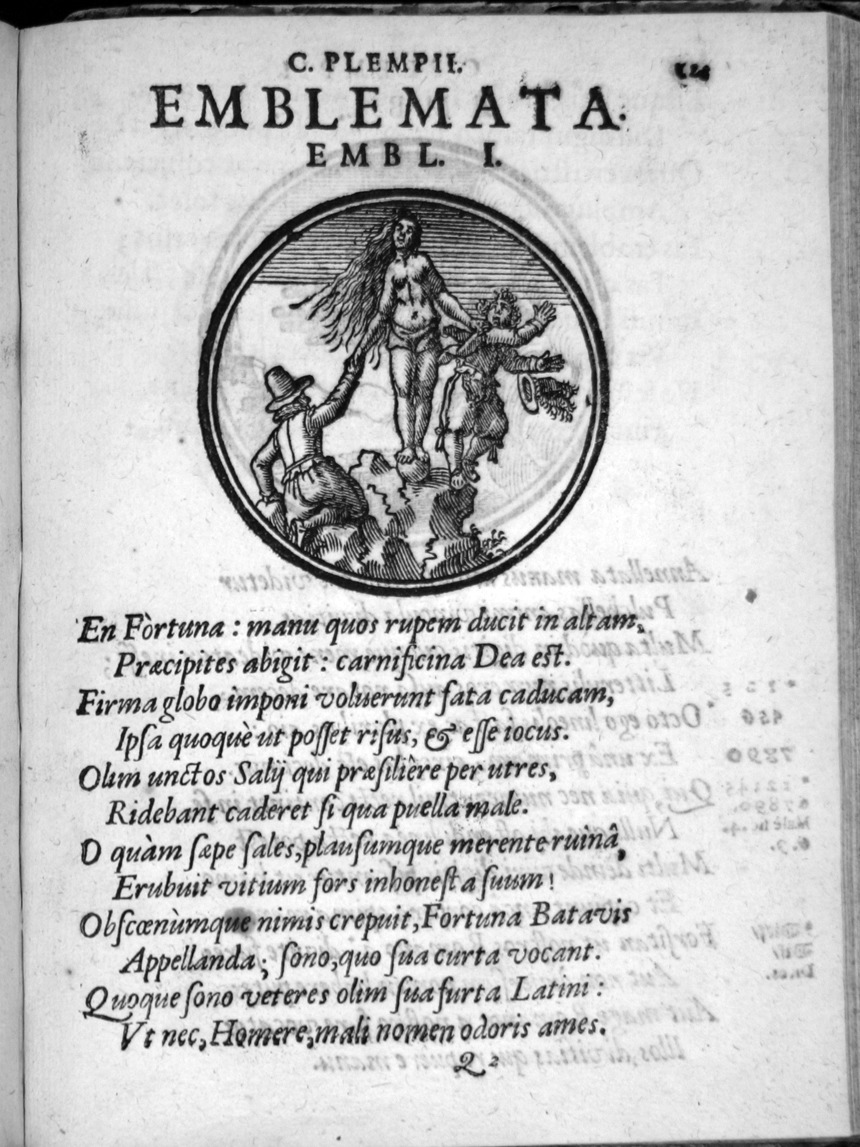 C. PLEMPII.
EMBLEMATA.
EMBL. I.
En Fòrtuna : manu quos rupem ducit in altam,
Præcipites abigit : carnificina Dea est.
Firma globo imponi voluerunt fata caducam,
Ipsa quoquè ut posset risus, & esse iocus.
Olim unctos Salij qui præsilière per utres,
Ridebant caderet si qua puella male.
O quàm sæpe sales, plausumque merente ruinâ,
Erubuit vitium fors inhonesta suum!
Obscœnùmque nimis crepuit, Fortuna Batavis
Appellanda; sono, quo sua curta vocant.
Quoque sono veteres olim sua furta Latini :
Vt nec, Homere, mali nomen odoris ames.
Q 2